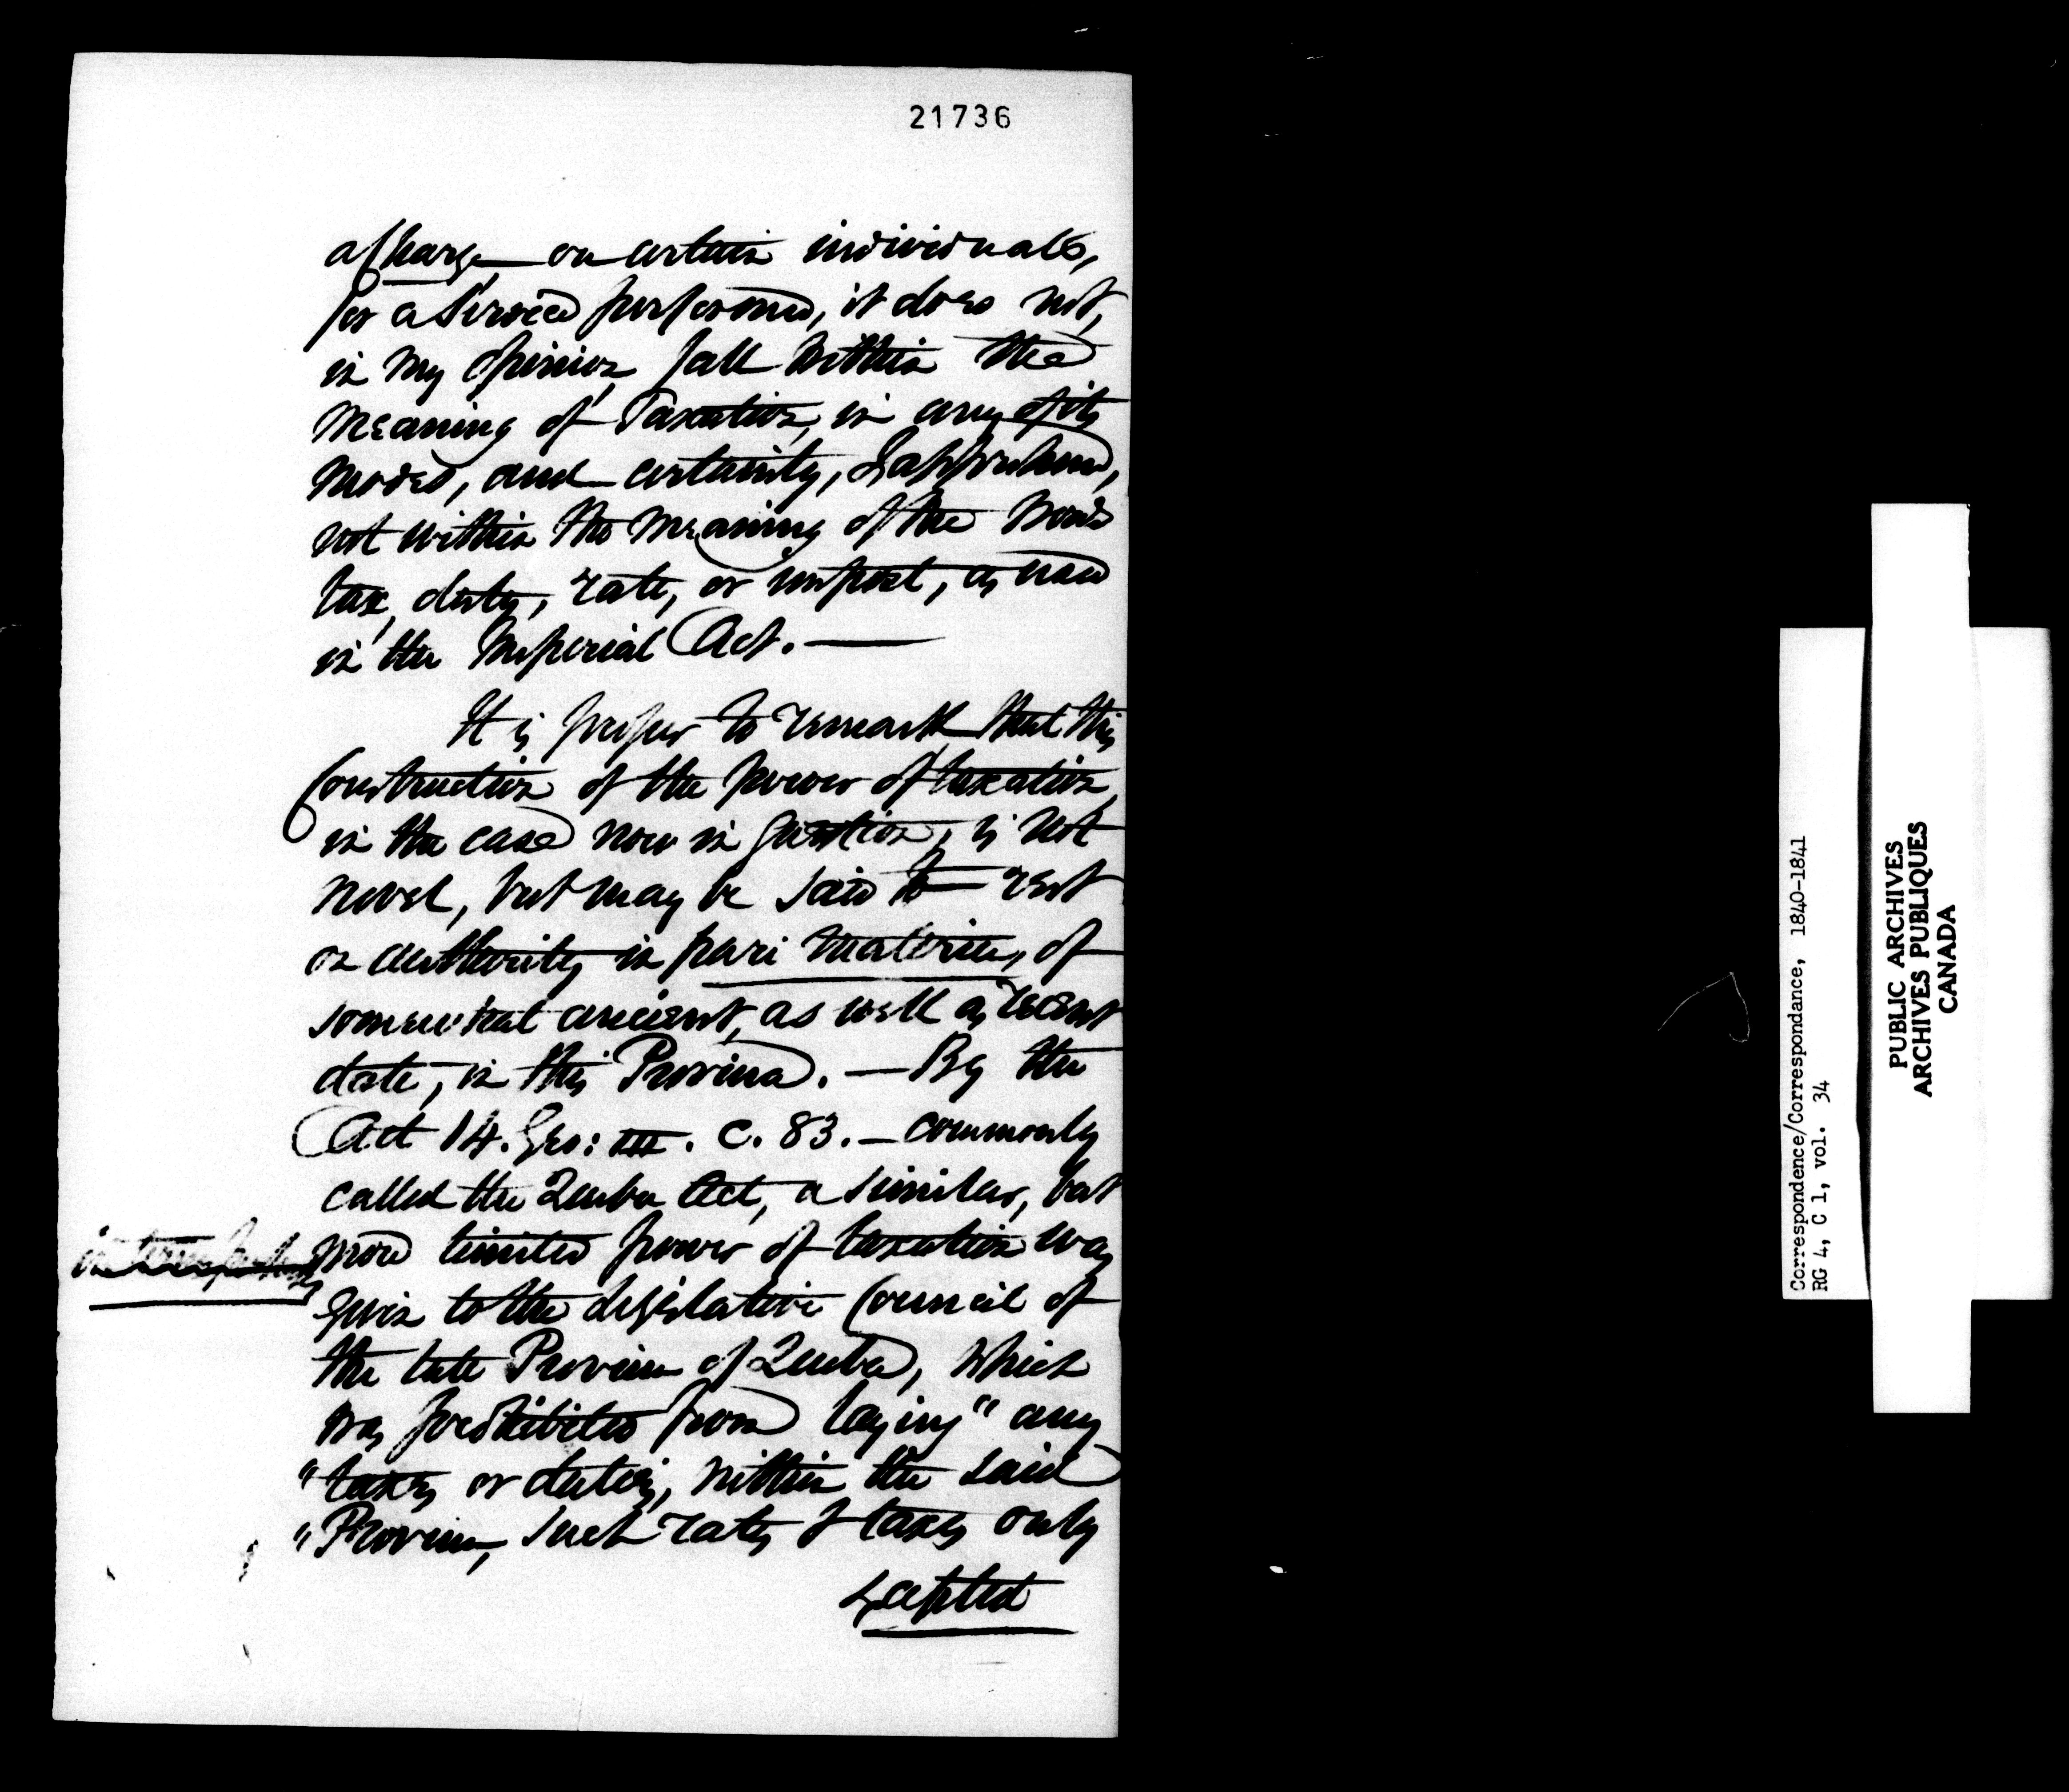 21736
a charge on certain individuals,
for a Service performed, it does not,
in my opinion, fall within the
meaning of Taxation, in any of its
modes, and certainly, I apprehend,
not within the meaning of the words
tax, duty, rate, or impost, as used
in the Imperial Act. —
It is proper to remark that this
Construction of the power of taxation,
in the case now in question, is not
novel, but may be said to rest
on authority in pari materia, of
somewhat ancient, as well as recent
date, in this Province. — By the
Act 14. Geo: III. C. 83. — commonly
called the Quebec Act, a similar, but
more limited power of taxation was
given to the Legislative Council of
the late Province of Quebec, which
was prohibited from laying "any
"taxes or duties, within the said
"Province, such rates & taxes only
excepted
Correspondence/Correspondance, 1840-1841
RG 4, C 1, vol. 34
PUBLIC ARCHIVES
ARCHIVES PUBLIQUES
CANADA